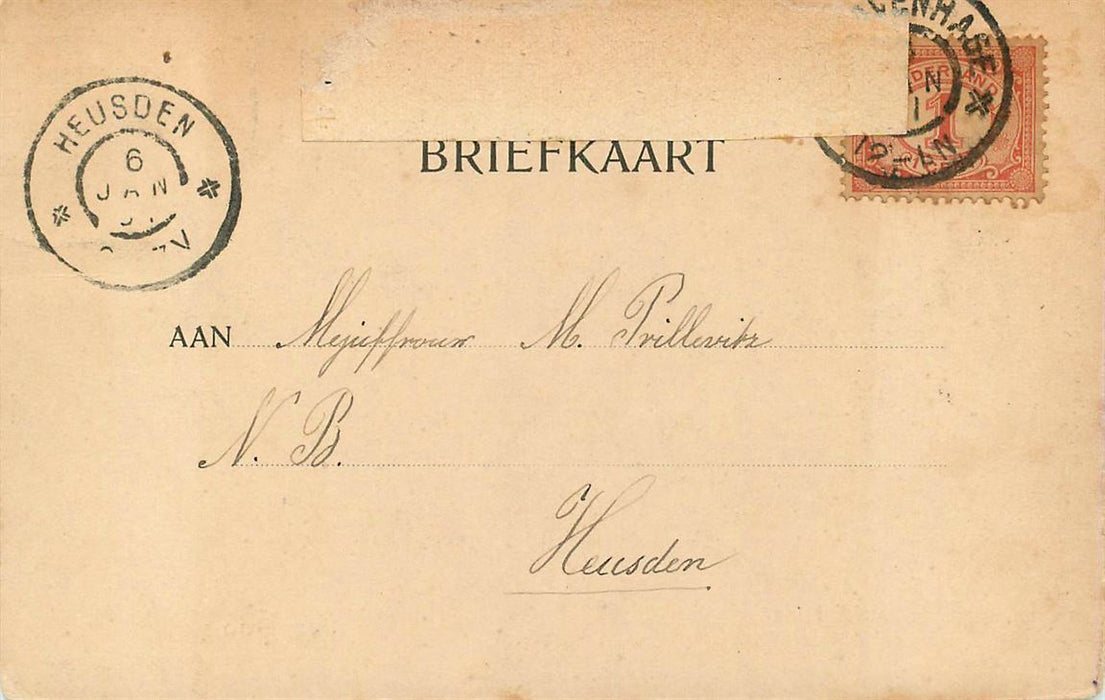 HEUSDEN
6
JAN
BRIEFKAART
1
AAN Mejuffrouw M. Prillevitz
N. B.
Heusden